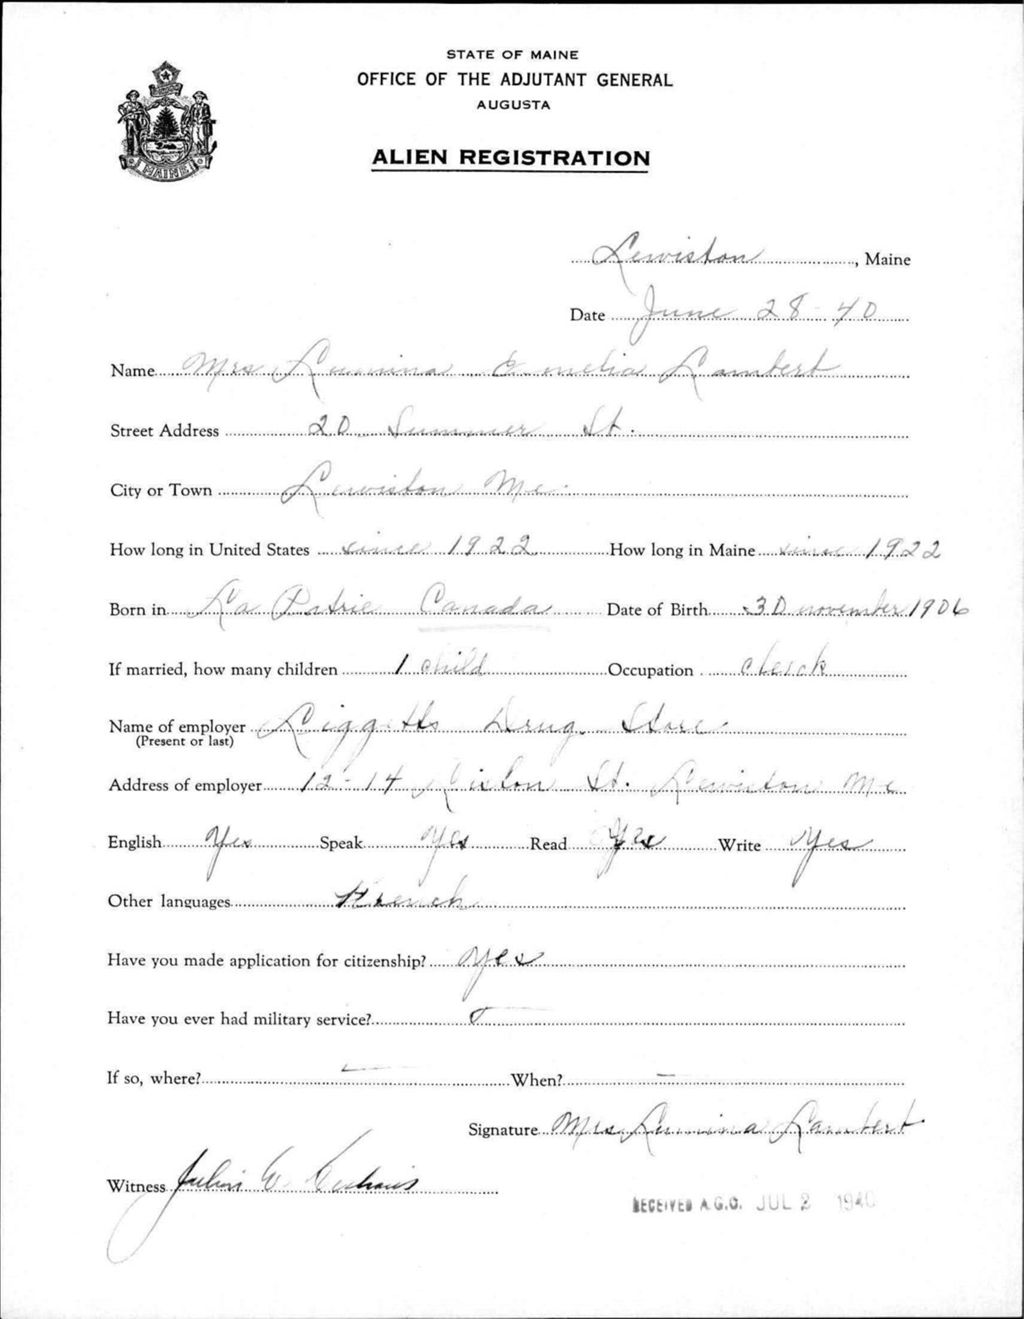 STATE OF MAINE
OFFICE OF THE ADJUTANT GENERAL
AUGUSTA
ALIEN REGISTRATION
MAINE
Lewiston, Maine
Date June 28-40
Name Mrs Lumina Lambert
Street Address 20 Summer St.
City or Town Lewiston Me.
How long in United States since 1922 How long in Maine since 1922
Born in La Patrie Canada Date of Birth 30 november 1906
If married, how many children 1 child Occupation clerck
Name of employer Liggetts Drug Store
(Present or last)
Address of employer 12-14 St. Lewiston Me
English Yes Speak Yes Read Yes Write Yes
Other languages French
Have you made application for citizenship? Yes
Have you ever had military service? 
If so, where? — When? —
Signature Mrs Lumina Lambert
Witness
RECEIVED A.G.O. JUL 2 1940